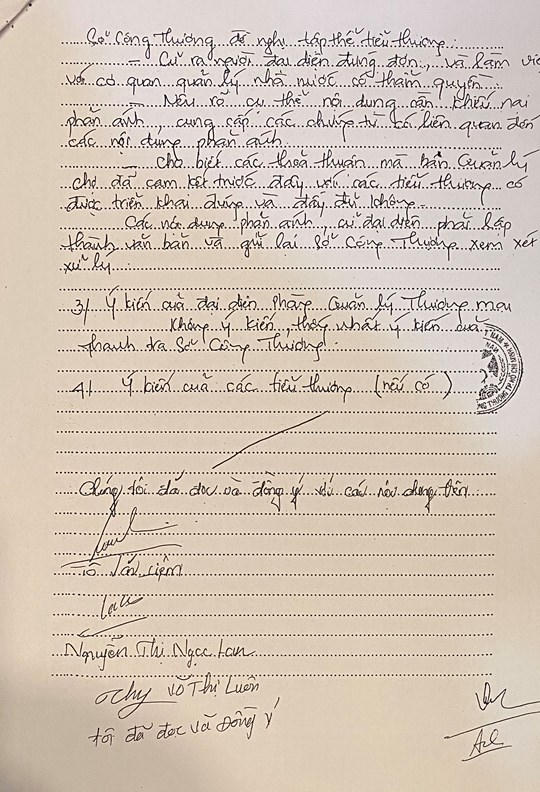 Sở Công Thương đề nghị tập thể tiểu thương:
- Cử ra người đại diện đứng đơn, và làm việ
với cơ quan quản lý nhà nước có thẩm quyền
- Nêu rõ cụ thể nội dung cần khiếu nại
phản ánh, cung cấp các chứng từ có liên quan đến
các nội dung phản ánh.
- Cho biết các thoả thuận mà ban Quản lý
chợ đã cam kết trước đây với các tiểu thương có
được triển khai đúng và đầy đủ không.
Các nội dung phản ánh, cử đại diện phải lập
thành văn bản và gửi lại Sở Công Thương xem xét
xử lý.
3/ Ý kiến của đại diện Phòng Quản lý Thương mại
Không ý kiến, thống nhất ý kiến của
thanh tra Sở Công Thương.
4/ Ý kiến của các tiểu thương (nếu có)
Chúng tôi đã đọc và đồng ý với các nội dung trên
Tô Văn Liêm
Nguyễn Thị Ngọc Lan
Võ Thị Luôn
tôi đã đọc và Đồng ý